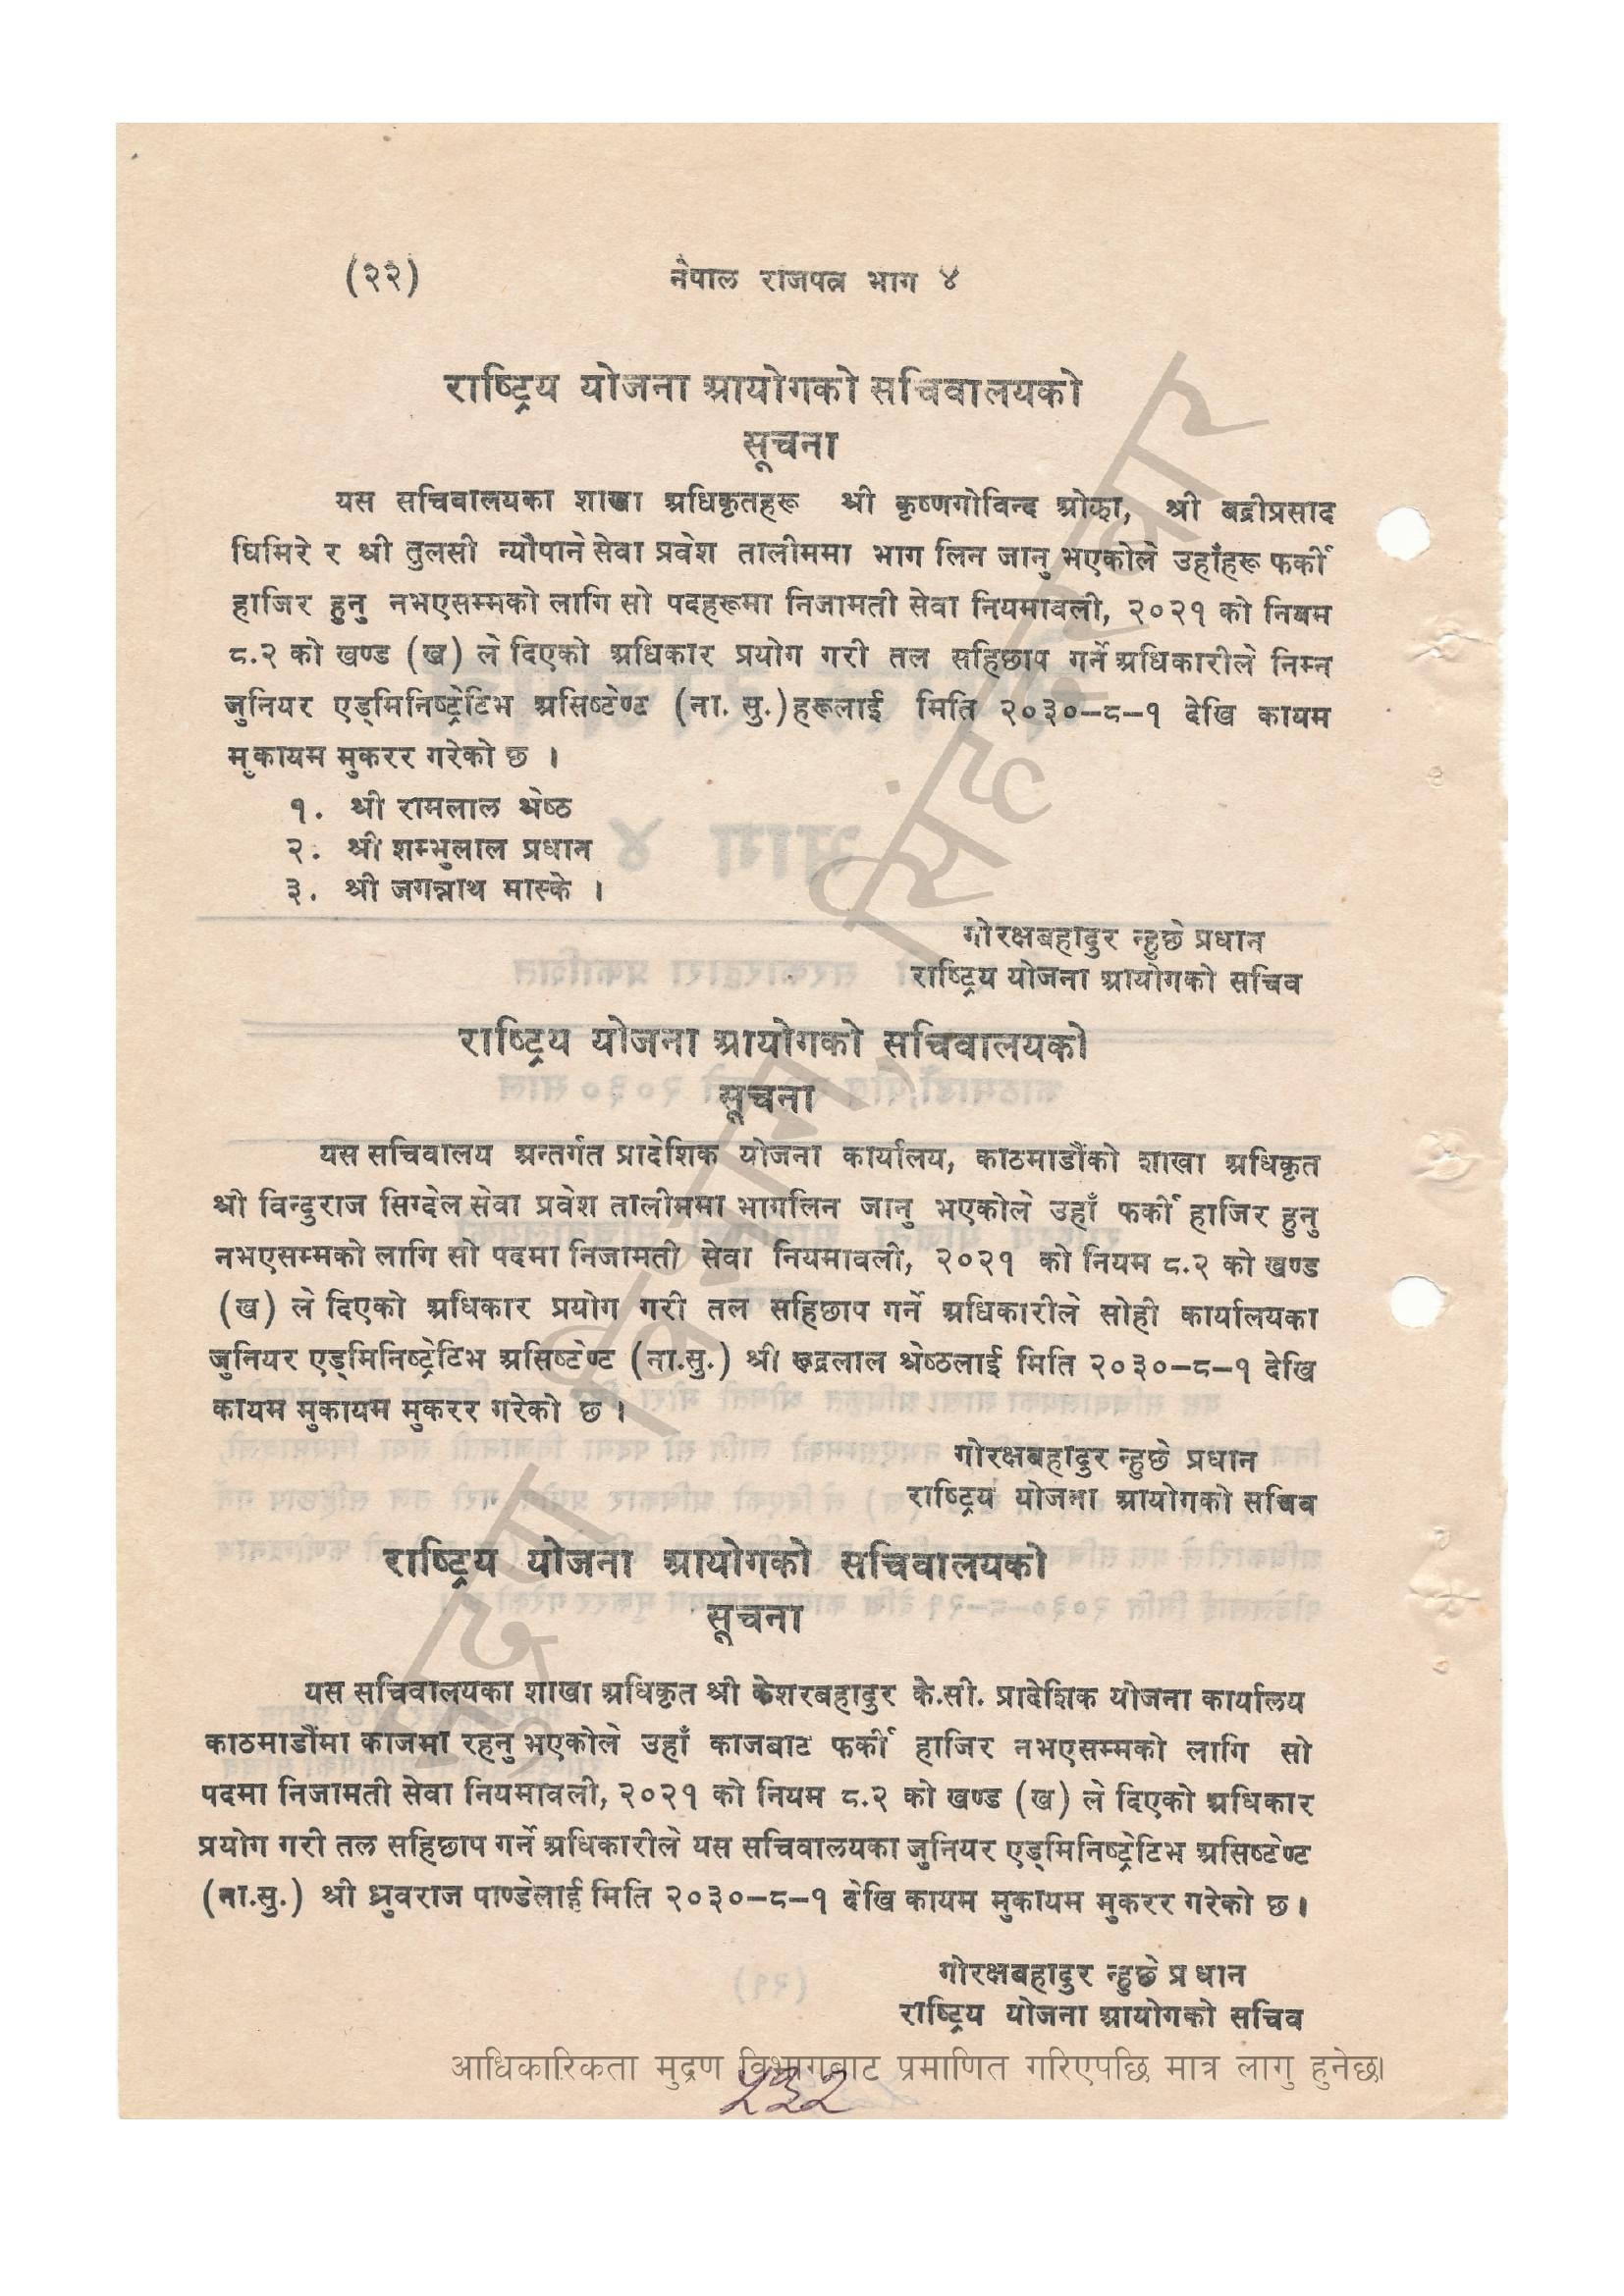 (२२) नेपाल राजपत्र भाग ४
राष्ट्रिय योजना आयोगको सचिवालयको
सूचना
यस सचिवालयका शाखा अधिकृतहरू श्री कृष्णगोविन्द ओझा, श्री बद्रीप्रसाद
घिमिरे र श्री तुलसी न्यौपाने सेवा प्रवेश तालीममा भाग लिन जानु भएकोले उहाँहरू फर्की
हाजिर हुनु नभएसम्मको लागि सो पदहरूमा निजामती सेवा नियमावली, २०२१ को नियम
८.२ को खण्ड (ख) ले दिएको अधिकार प्रयोग गरी तल सहिछाप गर्ने अधिकारीले निम्न
जुनियर एड्मिनिष्ट्रेटिभ असिष्टेण्ट (ना. सु.)हरूलाई मिति २०३०–८–१ देखि कायम
मुकायम मुकरर गरेको छ ।
१. श्री रामलाल श्रेष्ठ
२. श्री शम्भुलाल प्रधान
३. श्री जगन्नाथ मास्के ।
गोरक्षबहादुर न्हुछे प्रधान
राष्ट्रिय योजना आयोगको सचिव
राष्ट्रिय योजना आयोगको सचिवालयको
सूचना
यस सचिवालय अन्तर्गत प्रादेशिक योजना कार्यालय, काठमाडौंको शाखा अधिकृत
श्री विन्दुराज सिग्देल सेवा प्रवेश तालीममा भागलिन जानु भएकोले उहाँ फर्की हाजिर हुनु
नभएसम्मको लागि सो पदमा निजामती सेवा नियमावली, २०२१ को नियम ८.२ को खण्ड
(ख) ले दिएको अधिकार प्रयोग गरी तल सहिछाप गर्ने अधिकारीले सोही कार्यालयका
जुनियर एड्मिनिष्ट्रेटिभ असिष्टेण्ट (ना.सु.) श्री रूद्रलाल श्रेष्ठलाई मिति २०३०–८–१ देखि
कायम मुकायम मुकरर गरेको छ ।
गोरक्षबहादुर न्हुछे प्रधान
राष्ट्रिय योजना आयोगको सचिव
राष्ट्रिय योजना आयोगको सचिवालयको
सूचना
यस सचिवालयका शाखा अधिकृत श्री केशरबहादुर के.सी. प्रादेशिक योजना कार्यालय
काठमाडौंमा काजमा रहनु भएकोले उहाँ काजबाट फर्की हाजिर नभएसम्मको लागि सो
पदमा निजामती सेवा नियमावली, २०२१ को नियम ८.२ को खण्ड (ख) ले दिएको अधिकार
प्रयोग गरी तल सहिछाप गर्ने अधिकारीले यस सचिवालयका जुनियर एड्मिनिष्ट्रेटिभ असिष्टेण्ट
(ना.सु.) श्री ध्रुवराज पाण्डेलाई मिति २०३०–८–१ देखि कायम मुकायम मुकरर गरेको छ ।
गोरक्षबहादुर न्हुछे प्रधान
राष्ट्रिय योजना आयोगको सचिव
आधिकारिकता मुद्रण विभागबाट प्रमाणित गरिएपछि मात्र लागु हुनेछ।
मुद्रण विभाग, सिंहदरबार